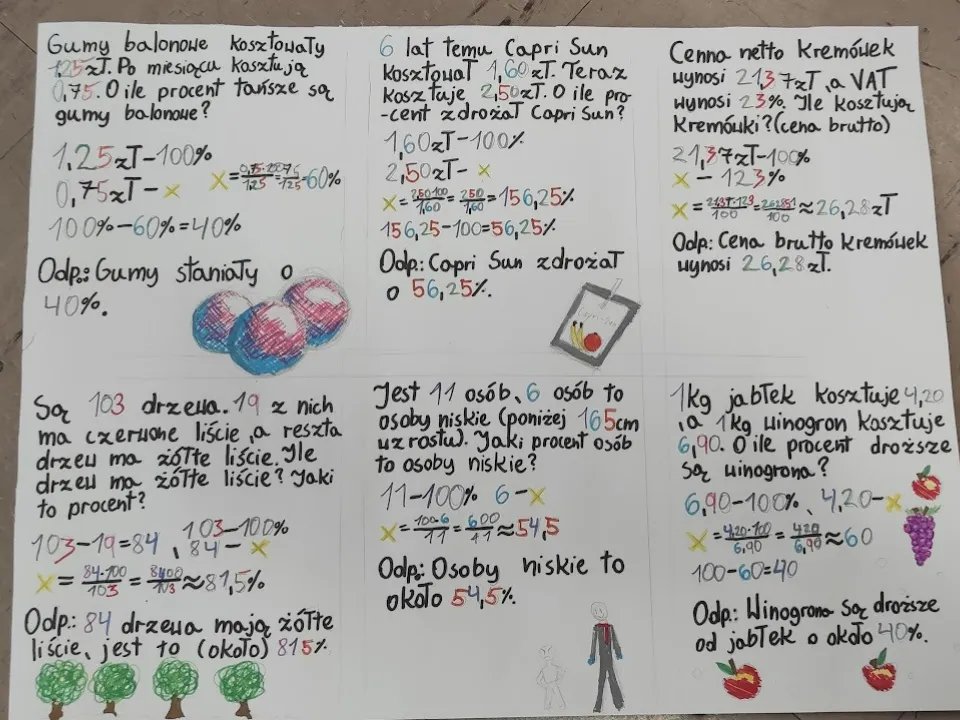 Gumy balonowe kosztowały
1,25zł. Po miesiącu kosztują
0,75. O ile procent tańsze są
gumy balonowe?
1,25zł-100%
0,75zł-x x=0,75·100/1,25=75/1,25=60%
100%-60%=40%
Odp.: Gumy staniały o
40%.
6 lat temu Capri Sun
kosztował 1,60zł. Teraz
kosztuje 2,50zł. O ile pro-
-cent zdrożał Capri Sun?
1,60zł-100%
2,50zł-x
x=2,50·100/1,60=250/1,60=156,25%
156,25-100=56,25%
Odp.: Capri Sun zdrożał
o 56,25%.
Capri-Sun
Cenna netto Kremówek
wynosi 21,37zł, a VAT
wynosi 23%. Ile kosztują
Kremówki? (cena brutto)
21,37zł-100%
x - 123%
x=21,37·123/100=2628,51/100≈26,28zł
Odp: Cena brutto Kremówek
wynosi 26,28zł.
Są 103 drzewa. 19 z nich
ma czerwone liście, a reszta
drzew ma żółte liście. Ile
drzew ma żółte liście? Jaki
to procent?
103-19=84, 103-100%
84-x
x=84·100/103=8400/103≈81,5%
Odp.: 84 drzewa mają żółte
liście, jest to (około) 81,5%
Jest 11 osób, 6 osób to
osoby niskie (poniżej 165cm
wzrostu). Jaki procent osób
to osoby niskie?
11-100% 6-x
x=100·6/11=600/11≈54,5
Odp.: Osoby niskie to
około 54,5%.
1kg jabłek kosztuje 4,20
, a 1kg winogron kosztuje
6,90. O ile procent droższe
są winogrona?
6,90-100%, 4,20-x
x=4,20·100/6,90=420/6,90≈60
100-60=40
Odp: Winogrona są droższe
od jabłek o około 40%.